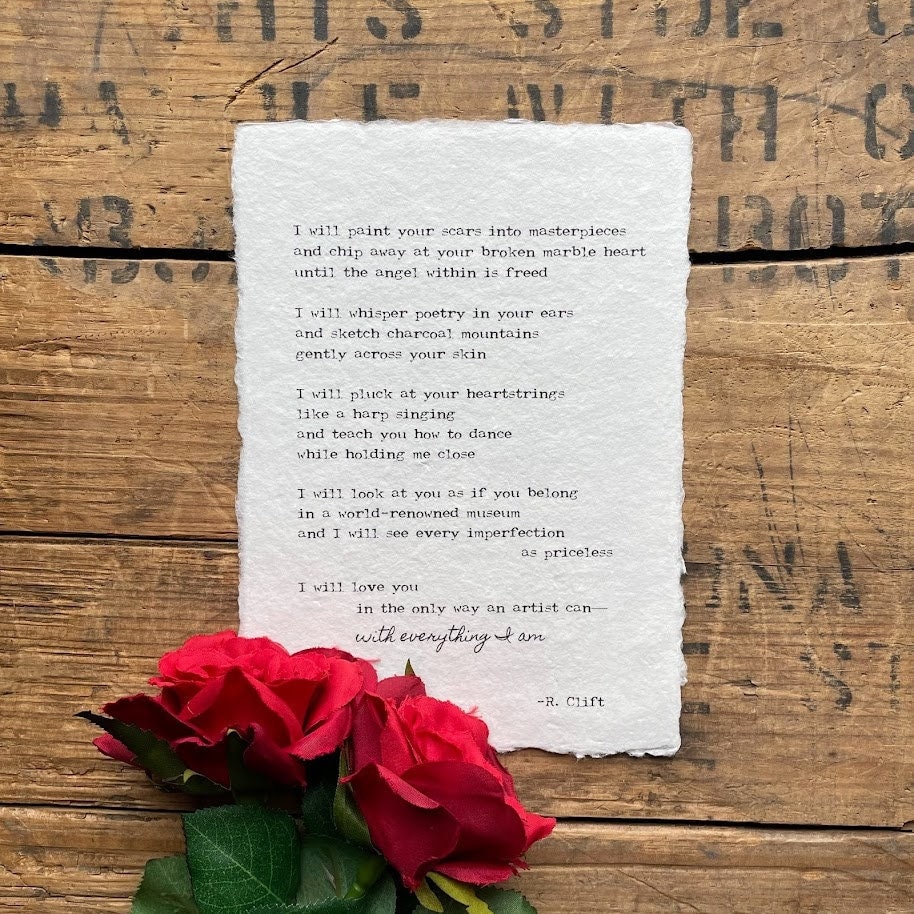 WITH
I will paint your scars into masterpieces
and chip away at your broken marble heart
until the angel within is freed
I will whisper poetry in your ears
and sketch charcoal mountains
gently across your skin
I will pluck at your heartstrings
like a harp singing
and teach you how to dance
while holding me close
I will look at you as if you belong
in a world-renowned museum
and I will see every imperfection
as priceless
I will love you
in the only way an artist can—
with everything I am
-R. Clift